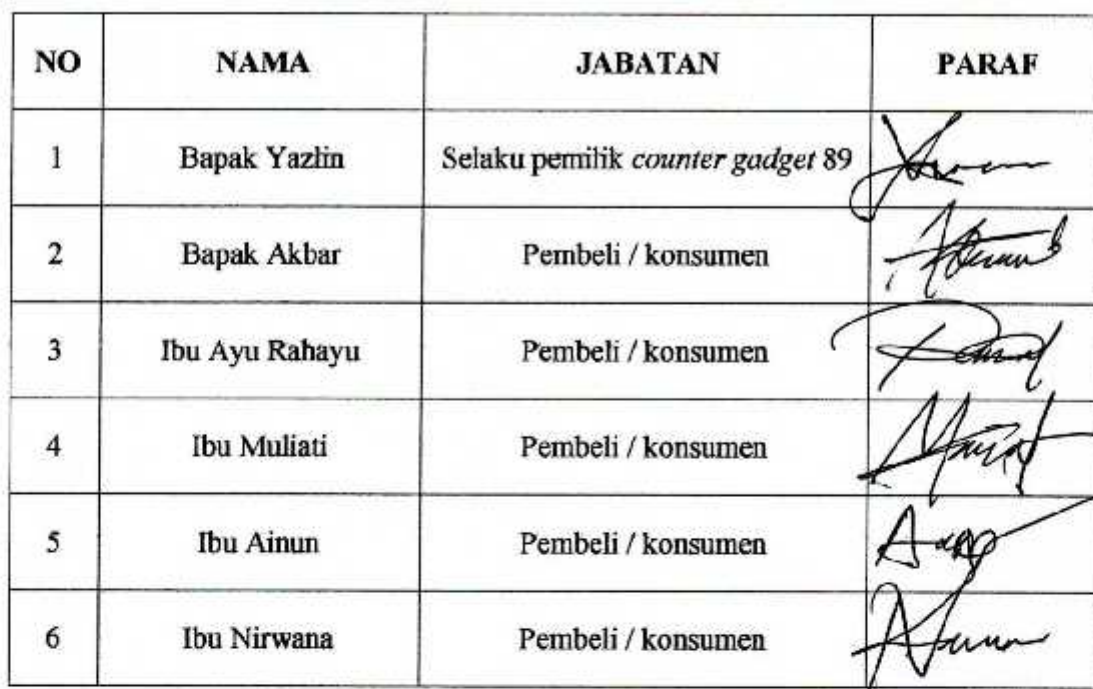 NO NAMA JABATAN PARAF
1 Bapak Yazlin Selaku pemilik counter gadget 89
2 Bapak Akbar Pembeli / konsumen
3 Ibu Ayu Rahayu Pembeli / konsumen
4 Ibu Muliati Pembeli / konsumen
5 Ibu Ainun Pembeli / konsumen
6 Ibu Nirwana Pembeli / konsumen